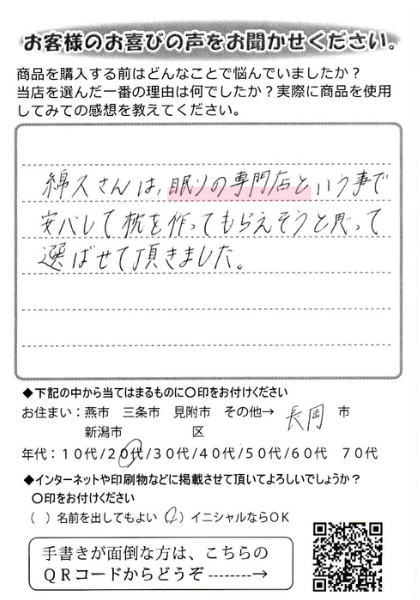 お客様のお喜びの声をお聞かせください。
商品を購入する前はどんなことで悩んでいましたか？
当店を選んだ一番の理由は何でしたか？実際に商品を使用
してみての感想を教えてください。
綿久さんは、眠りの専門店という事で
安心して枕を作ってもらえそうと思って
選ばせて頂きました。
◆下記の中から当てはまるものに〇印をお付けください
お住まい：燕市 三条市 見附市 その他→ 長岡 市
新潟市 区
年代：１０代/２０代/３０代/４０代/５０代/６０代 ７０代
◆インターネットや印刷物などに掲載させて頂いてよろしいでしょうか？
〇印をお付けください
（ ）名前を出してもよい （〇）イニシャルならＯＫ
手書きが面倒な方は、こちらの
ＱＲコードからどうぞ --------→